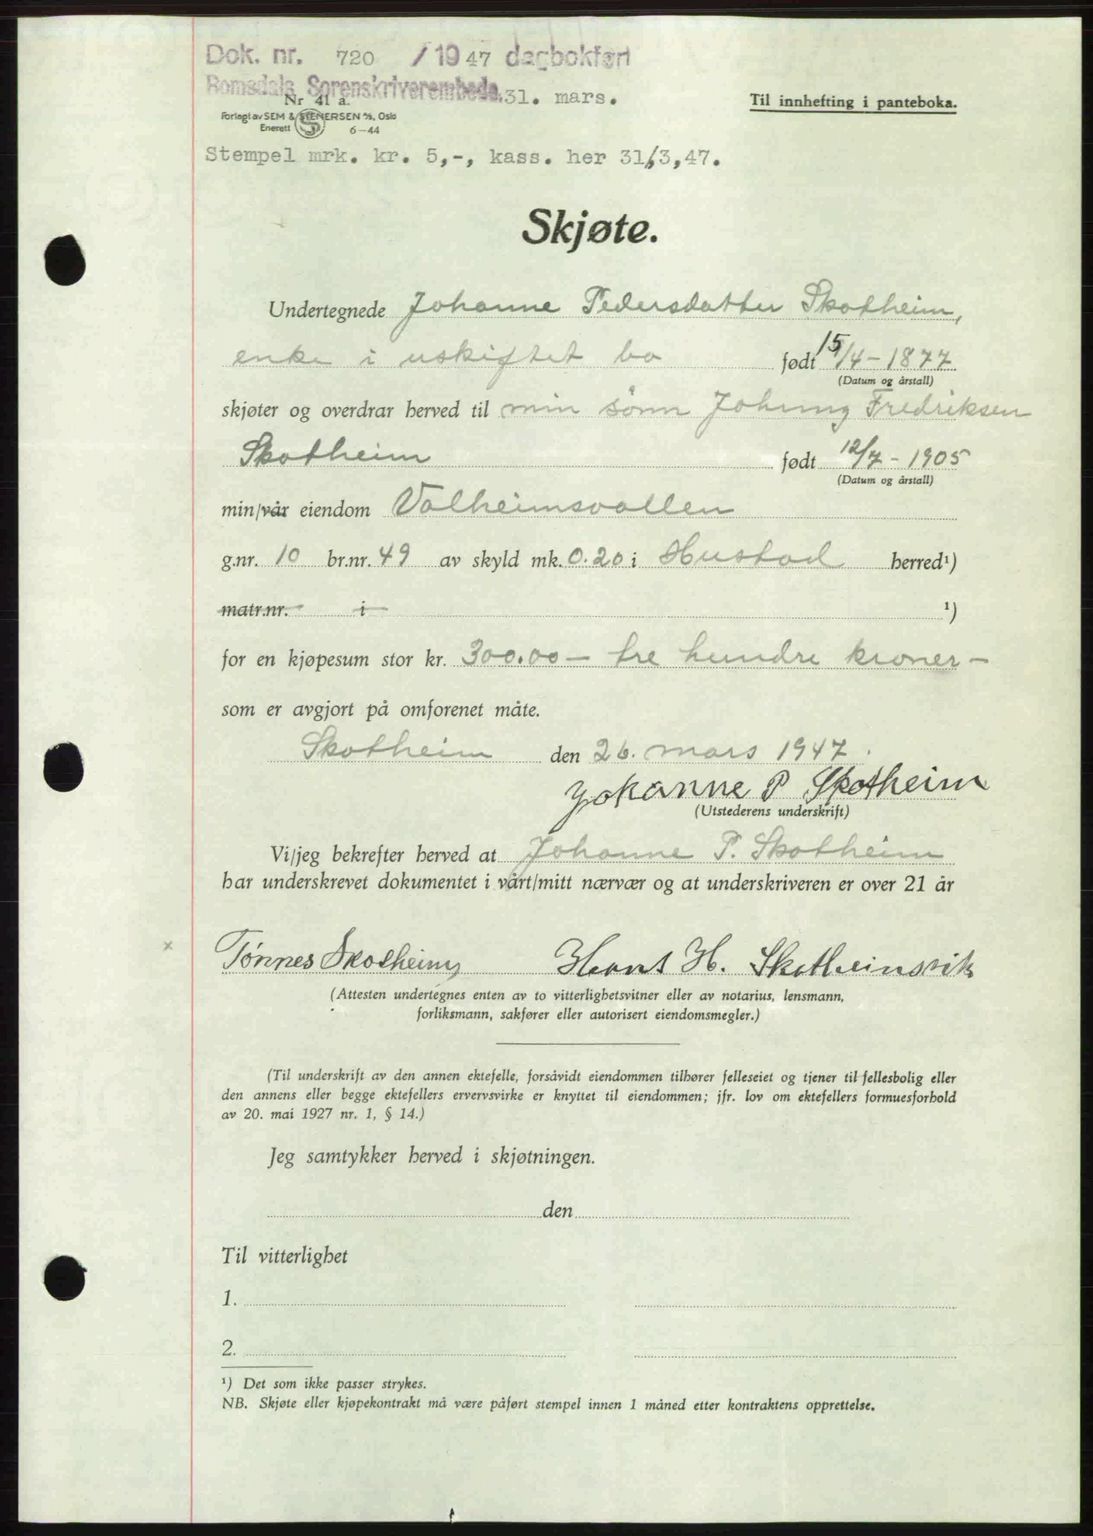 Dok. nr. 720 / 19 47 dagbokført
Romsdals Sorenskriverembede. 31. mars.
Nr 41 a.
Til innhefting i panteboka.
Forlagt av SEM & STENERSEN A/S, Oslo
Enerett S 6-44
Stempel mrk. kr. 5,-, kass. her 31/3,47.
Skjøte.
Undertegnede Johanne Pedersdatter Skotheim,
enke i uskiftet bo født 15/4-1877
(Datum og årstall)
skjøter og overdrar herved til min sønn Johnny Fredriksen
Skotheim født 12/7-1905
(Datum og årstall)
min/vår eiendom Valheimsvollen
g.nr. 10 br.nr. 49 av skyld mk. 0.20 i Hustad herred¹)
matr.nr. i ¹)
for en kjøpesum stor kr. 300.00 - tre hundre kroner -
som er avgjort på omforenet måte.
Skotheim den 26. mars 1947.
Johanne P Skotheim
(Utstederens underskrift)
Vi/jeg bekrefter herved at Johanne P. Skotheim
har underskrevet dokumentet i vårt/mitt nærvær og at underskriveren er over 21 år
x
Tønnes Skotheim Hans H. Skotheimsvik
(Attesten undertegnes enten av to vitterlighetsvitner eller av notarius, lensmann,
forliksmann, sakfører eller autorisert eiendomsmegler.)
(Til underskrift av den annen ektefelle, forsåvidt eiendommen tilhører felleseiet og tjener til fellesbolig eller
den annens eller begge ektefellers ervervsvirke er knyttet til eiendommen; jfr. lov om ektefellers formuesforhold
av 20. mai 1927 nr. 1, § 14.)
Jeg samtykker herved i skjøtningen.
den
Til vitterlighet
1.
2.
¹) Det som ikke passer strykes.
NB. Skjøte eller kjøpekontrakt må være påført stempel innen 1 måned etter kontraktens opprettelse.